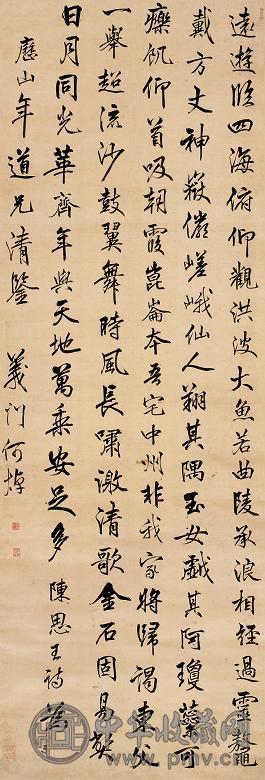 遠遊臨四海俯仰觀洪波大魚若曲陵承浪相經過靈鼇
戴方丈神嶽儼嵯峨仙人翔其隅玉女戲其阿瓊蘂可
療飢仰首吸朝霞崑崙本吾宅中州非我家將歸謁東父
一舉超流沙鼓翼舞時風長嘯激清歌金石固易弊
日月同光華齊年與天地萬乘安足多 陳思王詩為
山年道兄清鑒 義門何焯
中华收藏网